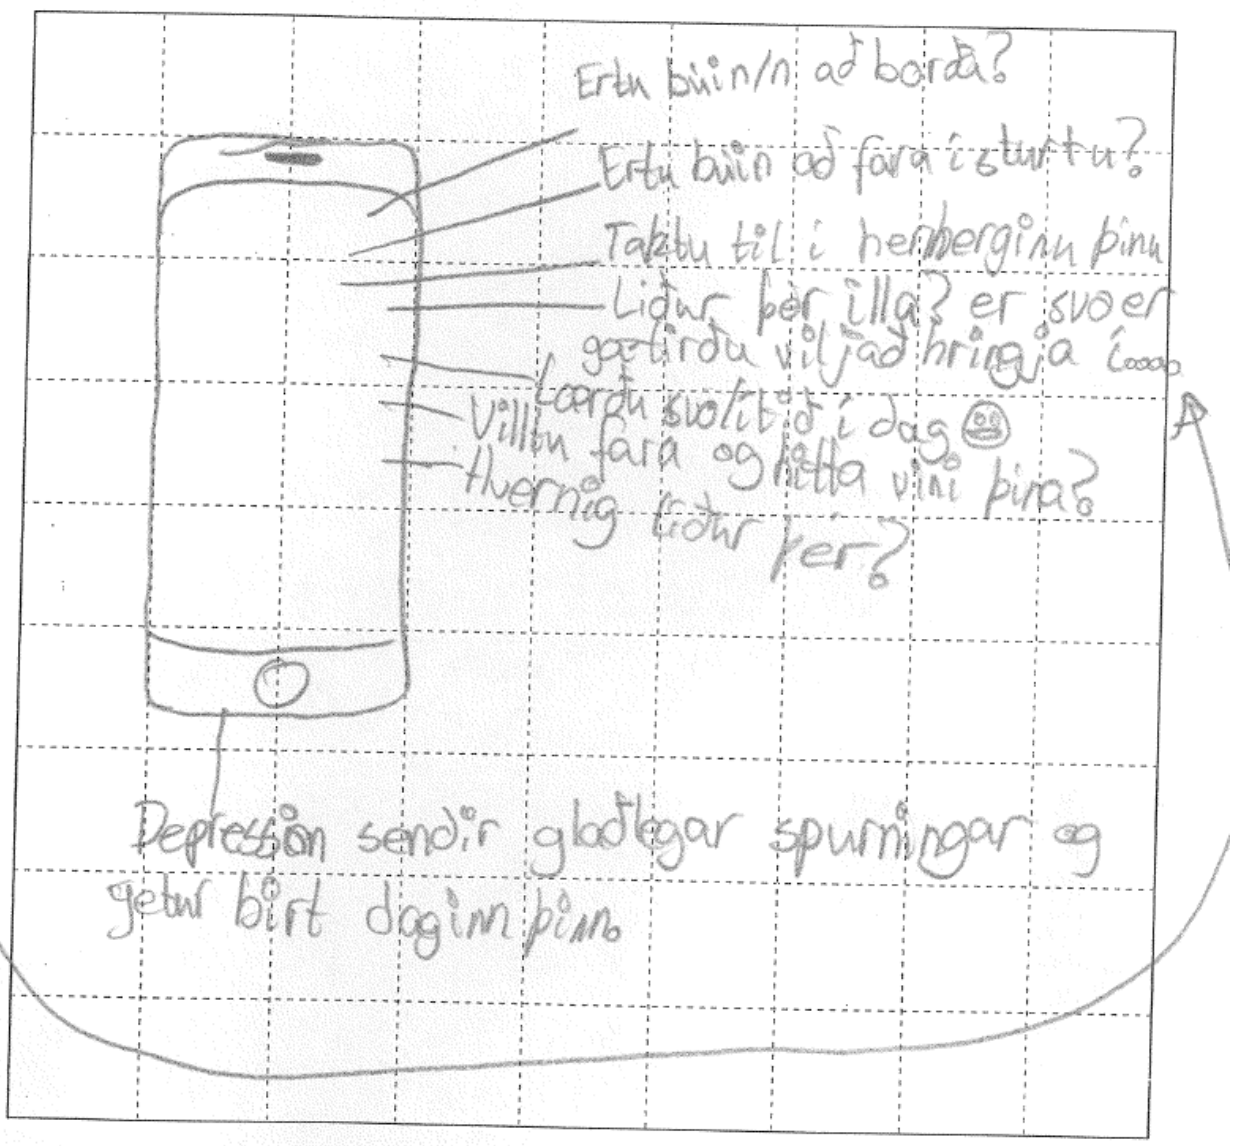 Ertu búin/n að borða?
Ertu búin að fara í sturtu?
Taktu til í herberginu þínu
Líður þér illa? er svo er
gætirðu viljað hringja í....
Lærðu svolítið í dag
Villtu fara og hitta vini þína?
Hvernig líður þér?
Depression sendir glaðlegar spurningar og
getur birt daginn þinn.